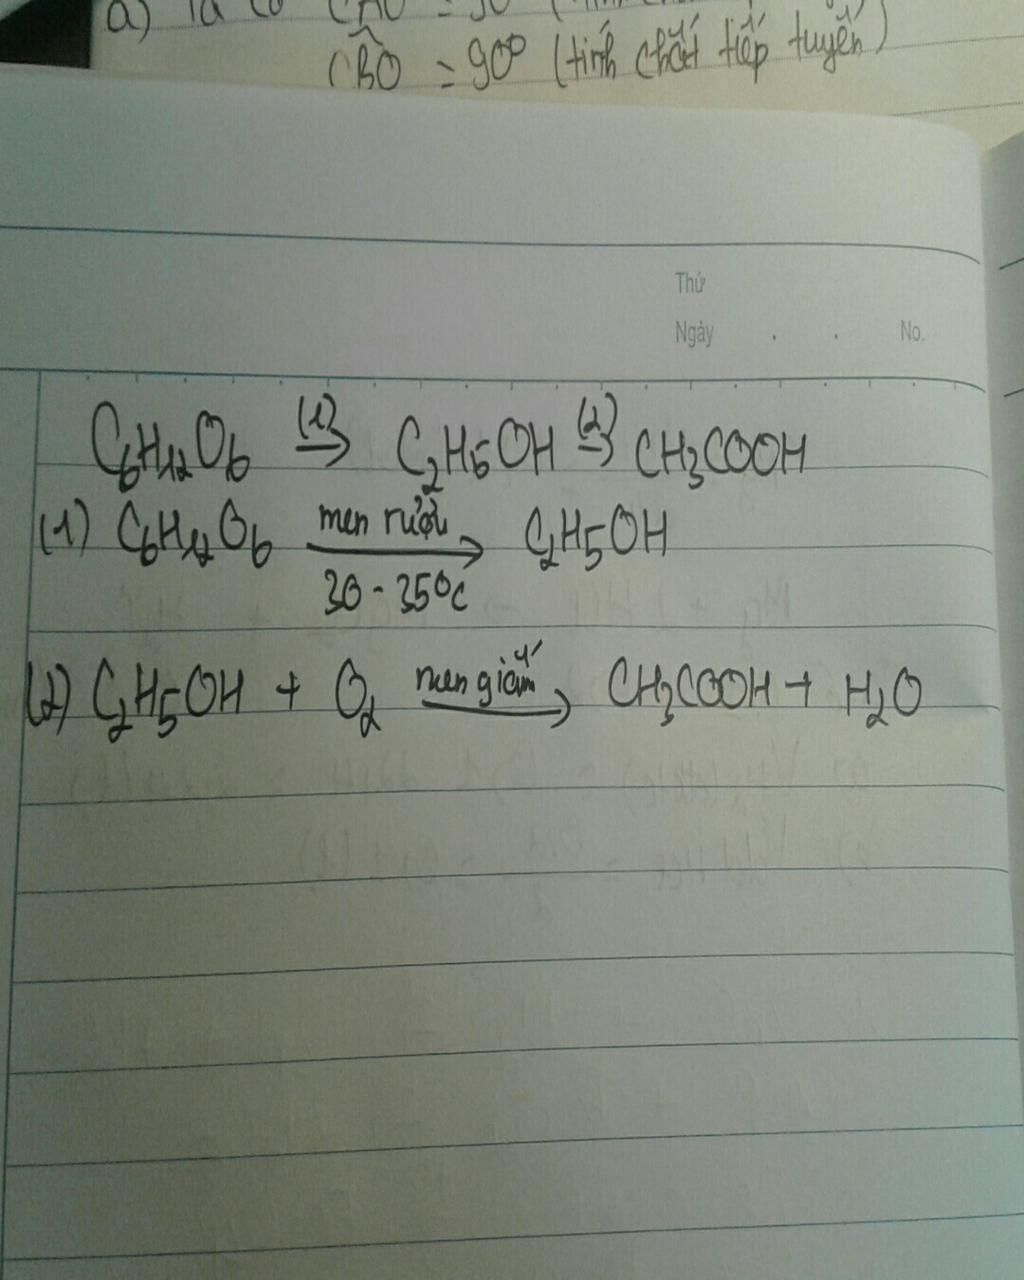 a) Ta có CAO = 90
CBO = 90° (tính chất tiếp tuyến)
Thứ
Ngày . . No.
C₆H₁₂O₆ →(1) C₂H₅OH →(2) CH₃COOH
(1) C₆H₁₂O₆ men rượu → C₂H₅OH
30 - 35°C
(2) C₂H₅OH + O₂ men giấm → CH₃COOH + H₂O